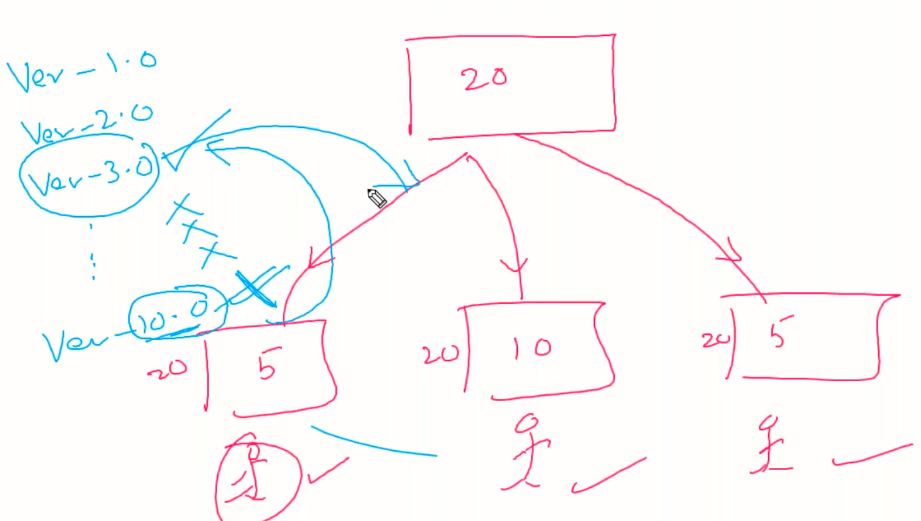 Ver-1.0
20
Ver-2.0
Ver-3.0
Ver-10.0
20
5
20
10
20
5